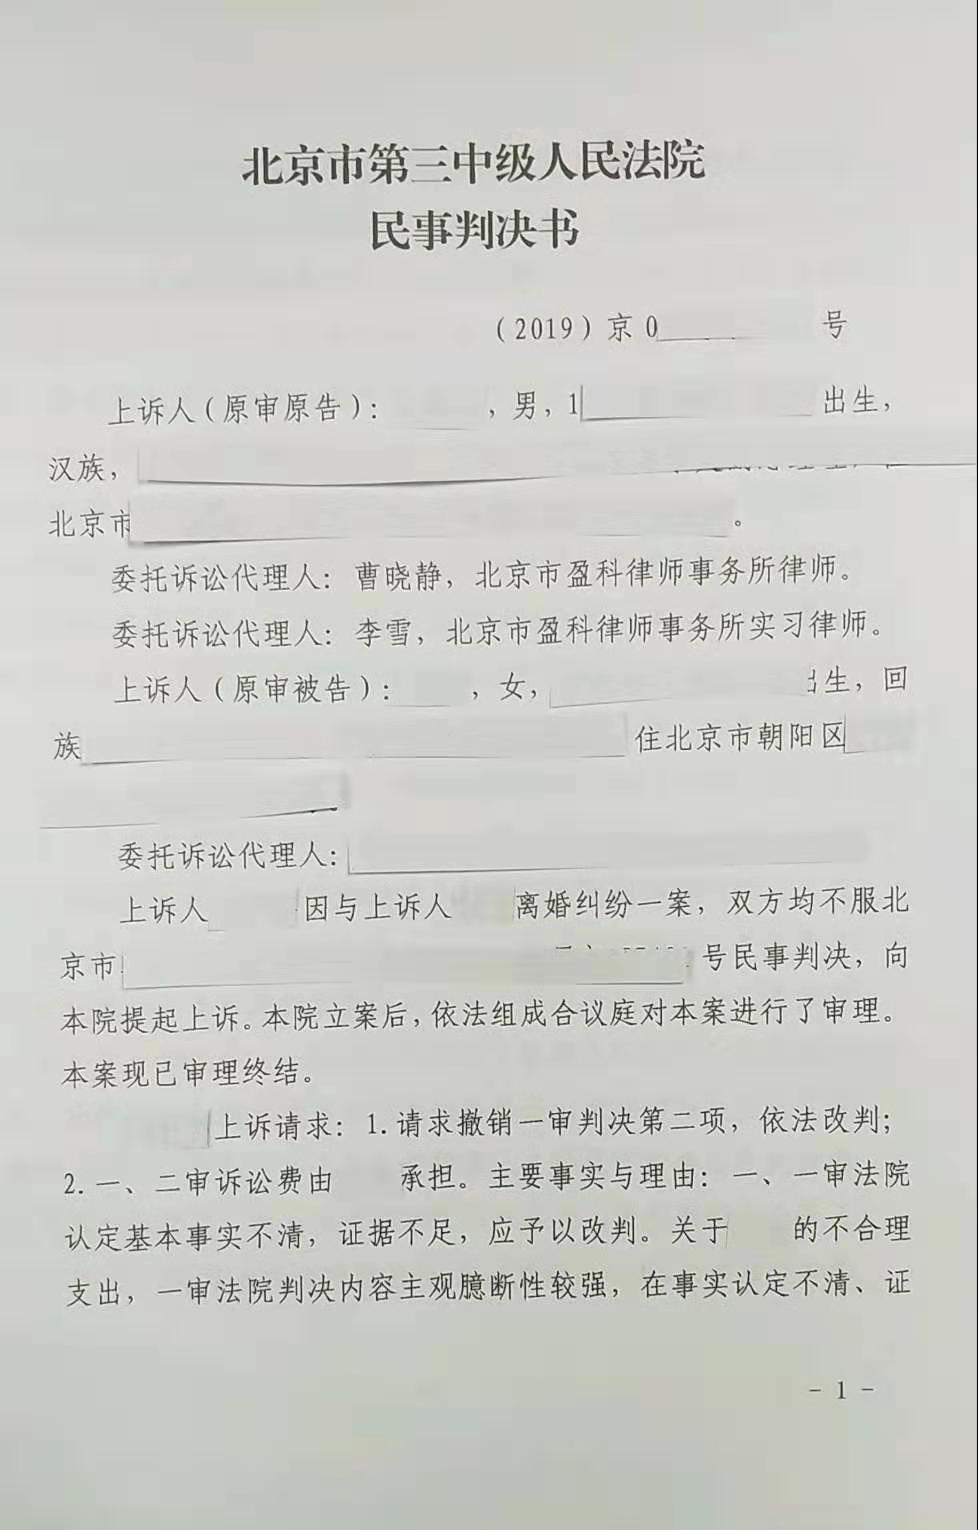 北京市第三中级人民法院
民事判决书
（2019）京0 号
上诉人（原审原告）： ，男，1 出生，
汉族，
北京市 。
委托诉讼代理人：曹晓静，北京市盈科律师事务所律师。
委托诉讼代理人：李雪，北京市盈科律师事务所实习律师。
上诉人（原审被告）： ，女， 出生，回
族 住北京市朝阳区
委托诉讼代理人：
上诉人 因与上诉人 离婚纠纷一案，双方均不服北
京市 号民事判决，向
本院提起上诉。本院立案后，依法组成合议庭对本案进行了审理。
本案现已审理终结。
上诉请求：1.请求撤销一审判决第二项，依法改判；
2.一、二审诉讼费由 承担。主要事实与理由：一、一审法院
认定基本事实不清，证据不足，应予以改判。关于 的不合理
支出，一审法院判决内容主观臆断性较强，在事实认定不清、证
- 1 -